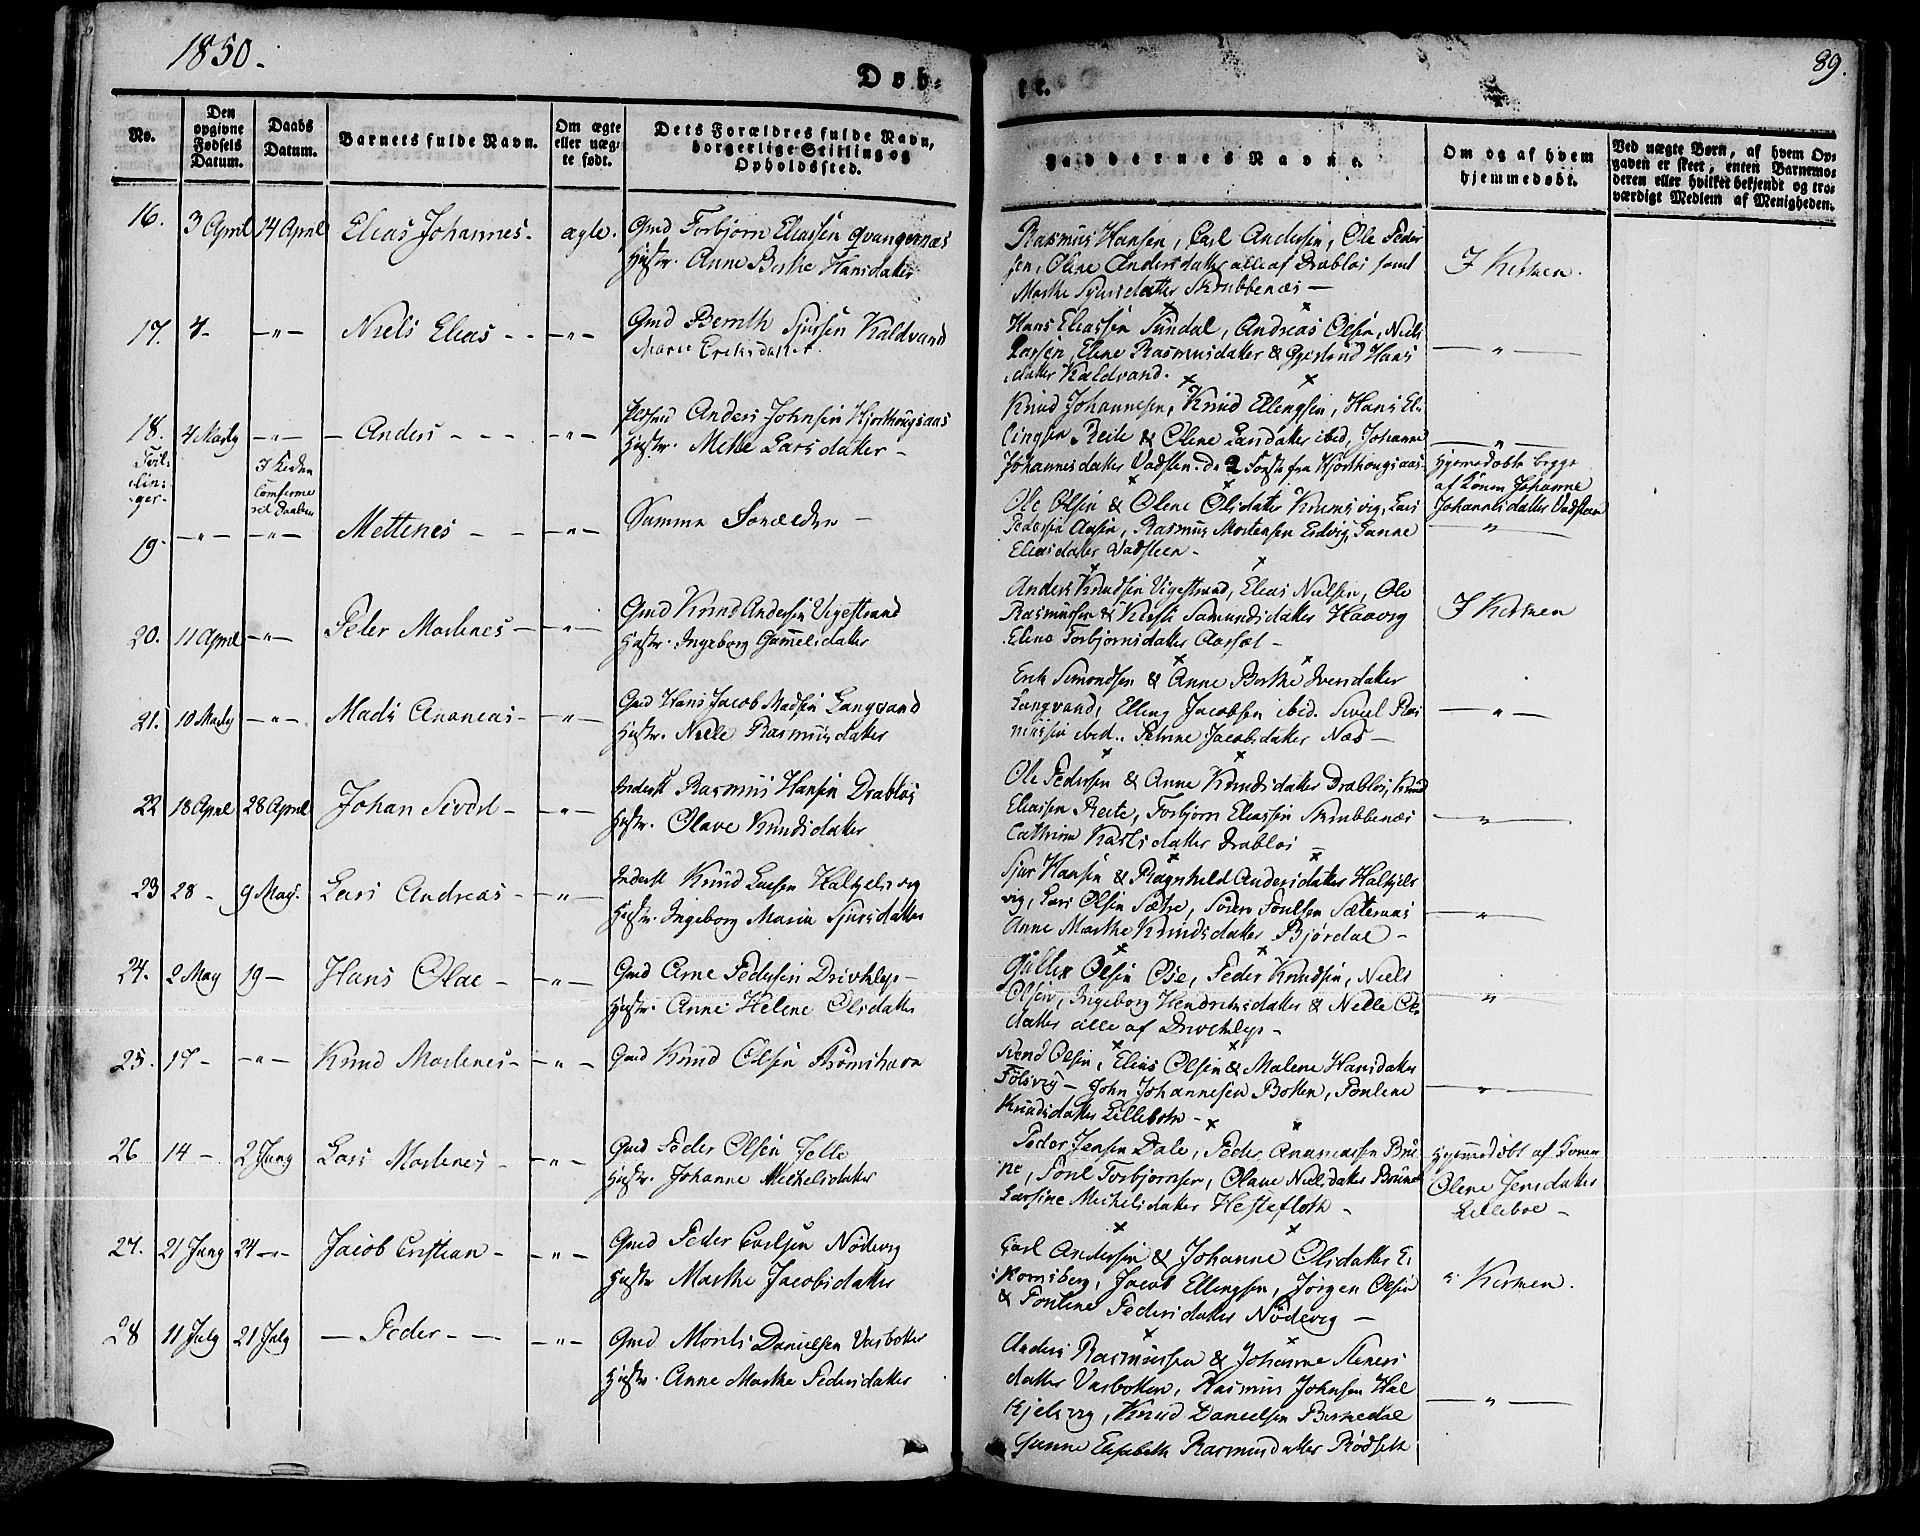 1850.
89.
Døb-
te.
No.
Den opgivne Fødsels Datum.
Daabs Datum.
Barnets fulde Navn.
Om ægte eller uægte født.
Dets Forældres fulde Navn, borgerlige Stilling og Opholdssted.
Faddernes Navne.
Om og af hvem hjemmedøbt.
Ved uægte Børn, af hvem Opgaven er skeet, enten Barnemoderen eller hvilket bekjendt og troværdigt Medlem af Menigheden.
16. 3 April 14 April Elias Johannes. ægte. Gmd Torbjørn Eliassen
Hustr. Anne Berthe Hansdatter
Rasmus Hansen, Carl Andersen, Ole Peder
sen, Oline Andersdatter alle af Drabløs samt
Marthe Sjursdatter Skrubbenæs —
I Kirken.
17. 4 - — " — Niels Elias - - — " — Gmd Bernth Sjursen Kaldvand
Marie Eriksdatter.
Hans Eliassen Sundal, Andreas Olsen, Niels
Larsen, Eline Rasmusdatter & Gjerlend Hans
datter Kaldvand.
— " —
18. 4 Marty — " — — Anders - - - — " — Anders Johnsen Hjorthougsaas
Hustr. Mette Larsdatter —
Tvil-
lin-
ger-
I Kirken
Confirme
ret Daaben
Knud Johannesen, Knud Ellingsen, Hans El-
lingsen Reite & Oline Larsdatter ibid, Johanne
Johannesdatter Vadsten. De 2 første fra Hjorthougsaas
— " —
Hjemmedøbte begge
af Konen Johanne
Johannesdatter Vadsteen
19. — " — — " — Mettenes - - — " — Samme Forældre —
Ole Olsen & Oline Olsdatter lars
Pedersen Aasen, Rasmus Mortensen Eidvig, Hanne
Eliasdatter Vadsteen -
"
20. 11 April — " — Peter Martines — — " — Gmd Knud Andersen Vigestrand
Hustr. Ingeborg Gammelsdatter
Anders Knudsen Vigestrand, Elias Nielsen, Ole
Rasmussen & Kirsti Samundsdatter Haavig
Eline Torbjørnsdatter Aarsæt -
I Kirken
21. 10 Marty — " — Mads Ananeas — — " — Gmd Hans Jacob Madsen Langvand
Hustr. Nille Rasmusdatter
Erik Simondsen & Anne Berthe Iversdatter
Langvand, Elling Jacobsen ibid. Sivert Ras
mussen ibid., Petrine Jacobsdatter Næs —
— " —
22 18 April 28 April Johan Sivert - — " — Inderst Rasmus Hansen Drabløs
Hustr. Olave Knudsdatter
Ole Pedersen & Anne Knudsdatter Drabløs, Knud
Eliassen Reite, Torbjørn Eliassen Skrubbenæs
Cathrine Karlsdatter Drabløs —
— " —
23 28 - 9 May. Lars Andreas - — " — Inderst Knud Larsen Halkjelsvig
Hustr. Ingeborg Maria Sjursdatter
Sjur Hansen & Ragnhild Andersdatter Halkjels
vig, Lars Olsen Sætre, Søren Poulsen Sæternæs
Anne Marthe Knudsdatter Bjørdal -
— " —
24. 2 May 19 — Hans Olae - — " — Gmd Arne Pedersen Drivklep —
Hustr. Anne Helene Olsdatter
Olsen Ose, Peder Knudsen, Niels
Olsen, Ingeborg Hendriksdatter & Nille Ols
datter alle af Drivklep -
"
25. 17 - — " — Knud Martines - — " — Gmd Knud Olsen Strømshavn
Svend Olsen, Elias Olsen & Malene Hansdatter
Følsvig — John Johannesen Botten, Pouline
Knudsdatter Lillebotn -
— " —
26 14 - 2 Juny Lars Martines - — " — Gmd Peder Olsen
Hustr. Johanne Mickelsdatter
Peder Jensen Dale, Peder Ananiassen Bru-
ne, Poul Torbjørnsen, Olave Nielsdatter Brune
Larsine Michelsdatter Hestefloth -
Hjemmedøbt af Konen
Oline Jensdatter
Lilleboe -
27. 21 Juny 24 — " — Jacob Cristian - — " — Gmd Peder Carlsen Nødevig
Hustr Marthe Jacobsdatter
Carl Andersen & Johanne Olsdatter E-
Kornsberg, Jacob Ellingsen, Jørgen Olsen
& Pouline Pedersdatter Nødevig —
i Kirken.
28 11 July 21 July — Peder - — — " — Gmd Morits Danielsen Vasbotten
Hustr. Anne Marthe Pedersdatter
Anders Rasmussen & Johanne Steners
datter Vasbotten, Rasmus Johnsen Hal
kjelsvig, Knud Danielsen Birkedal
Hanne Elisabeth Rasmusdatter Rødseth
— " —